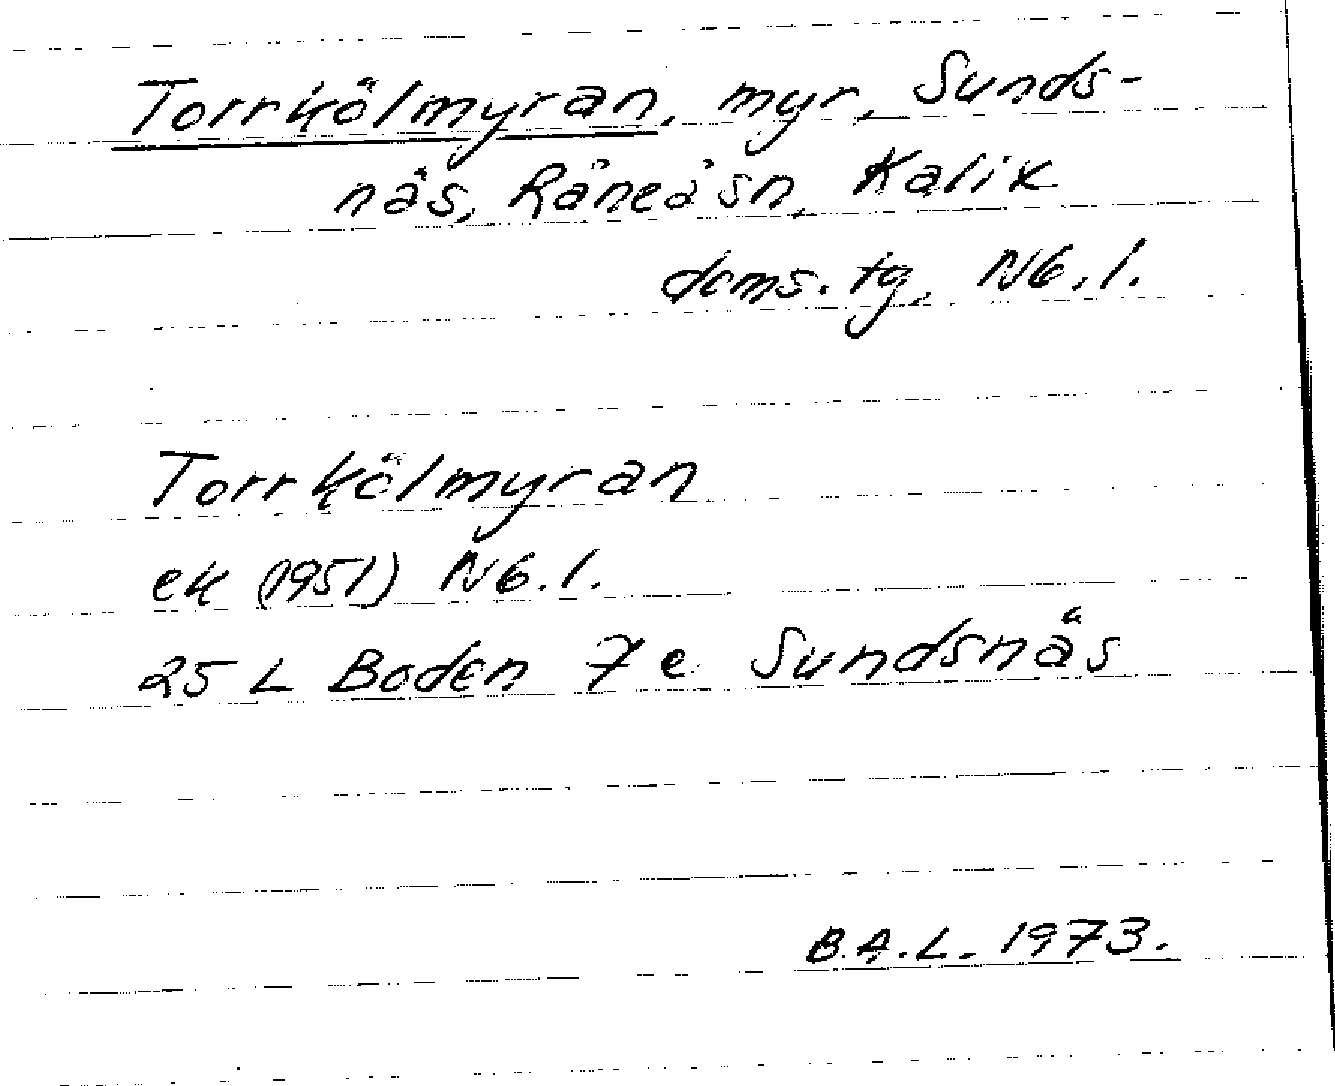 Torrkölmyran, myr, Sunds-
näs, Råneå sn, Kalix
doms. tg, Nb. l.
Torrkölmyran
ek (1951) Nb. l.
25 L Boden 7 e Sundsnäs
B.A.L. 1973.